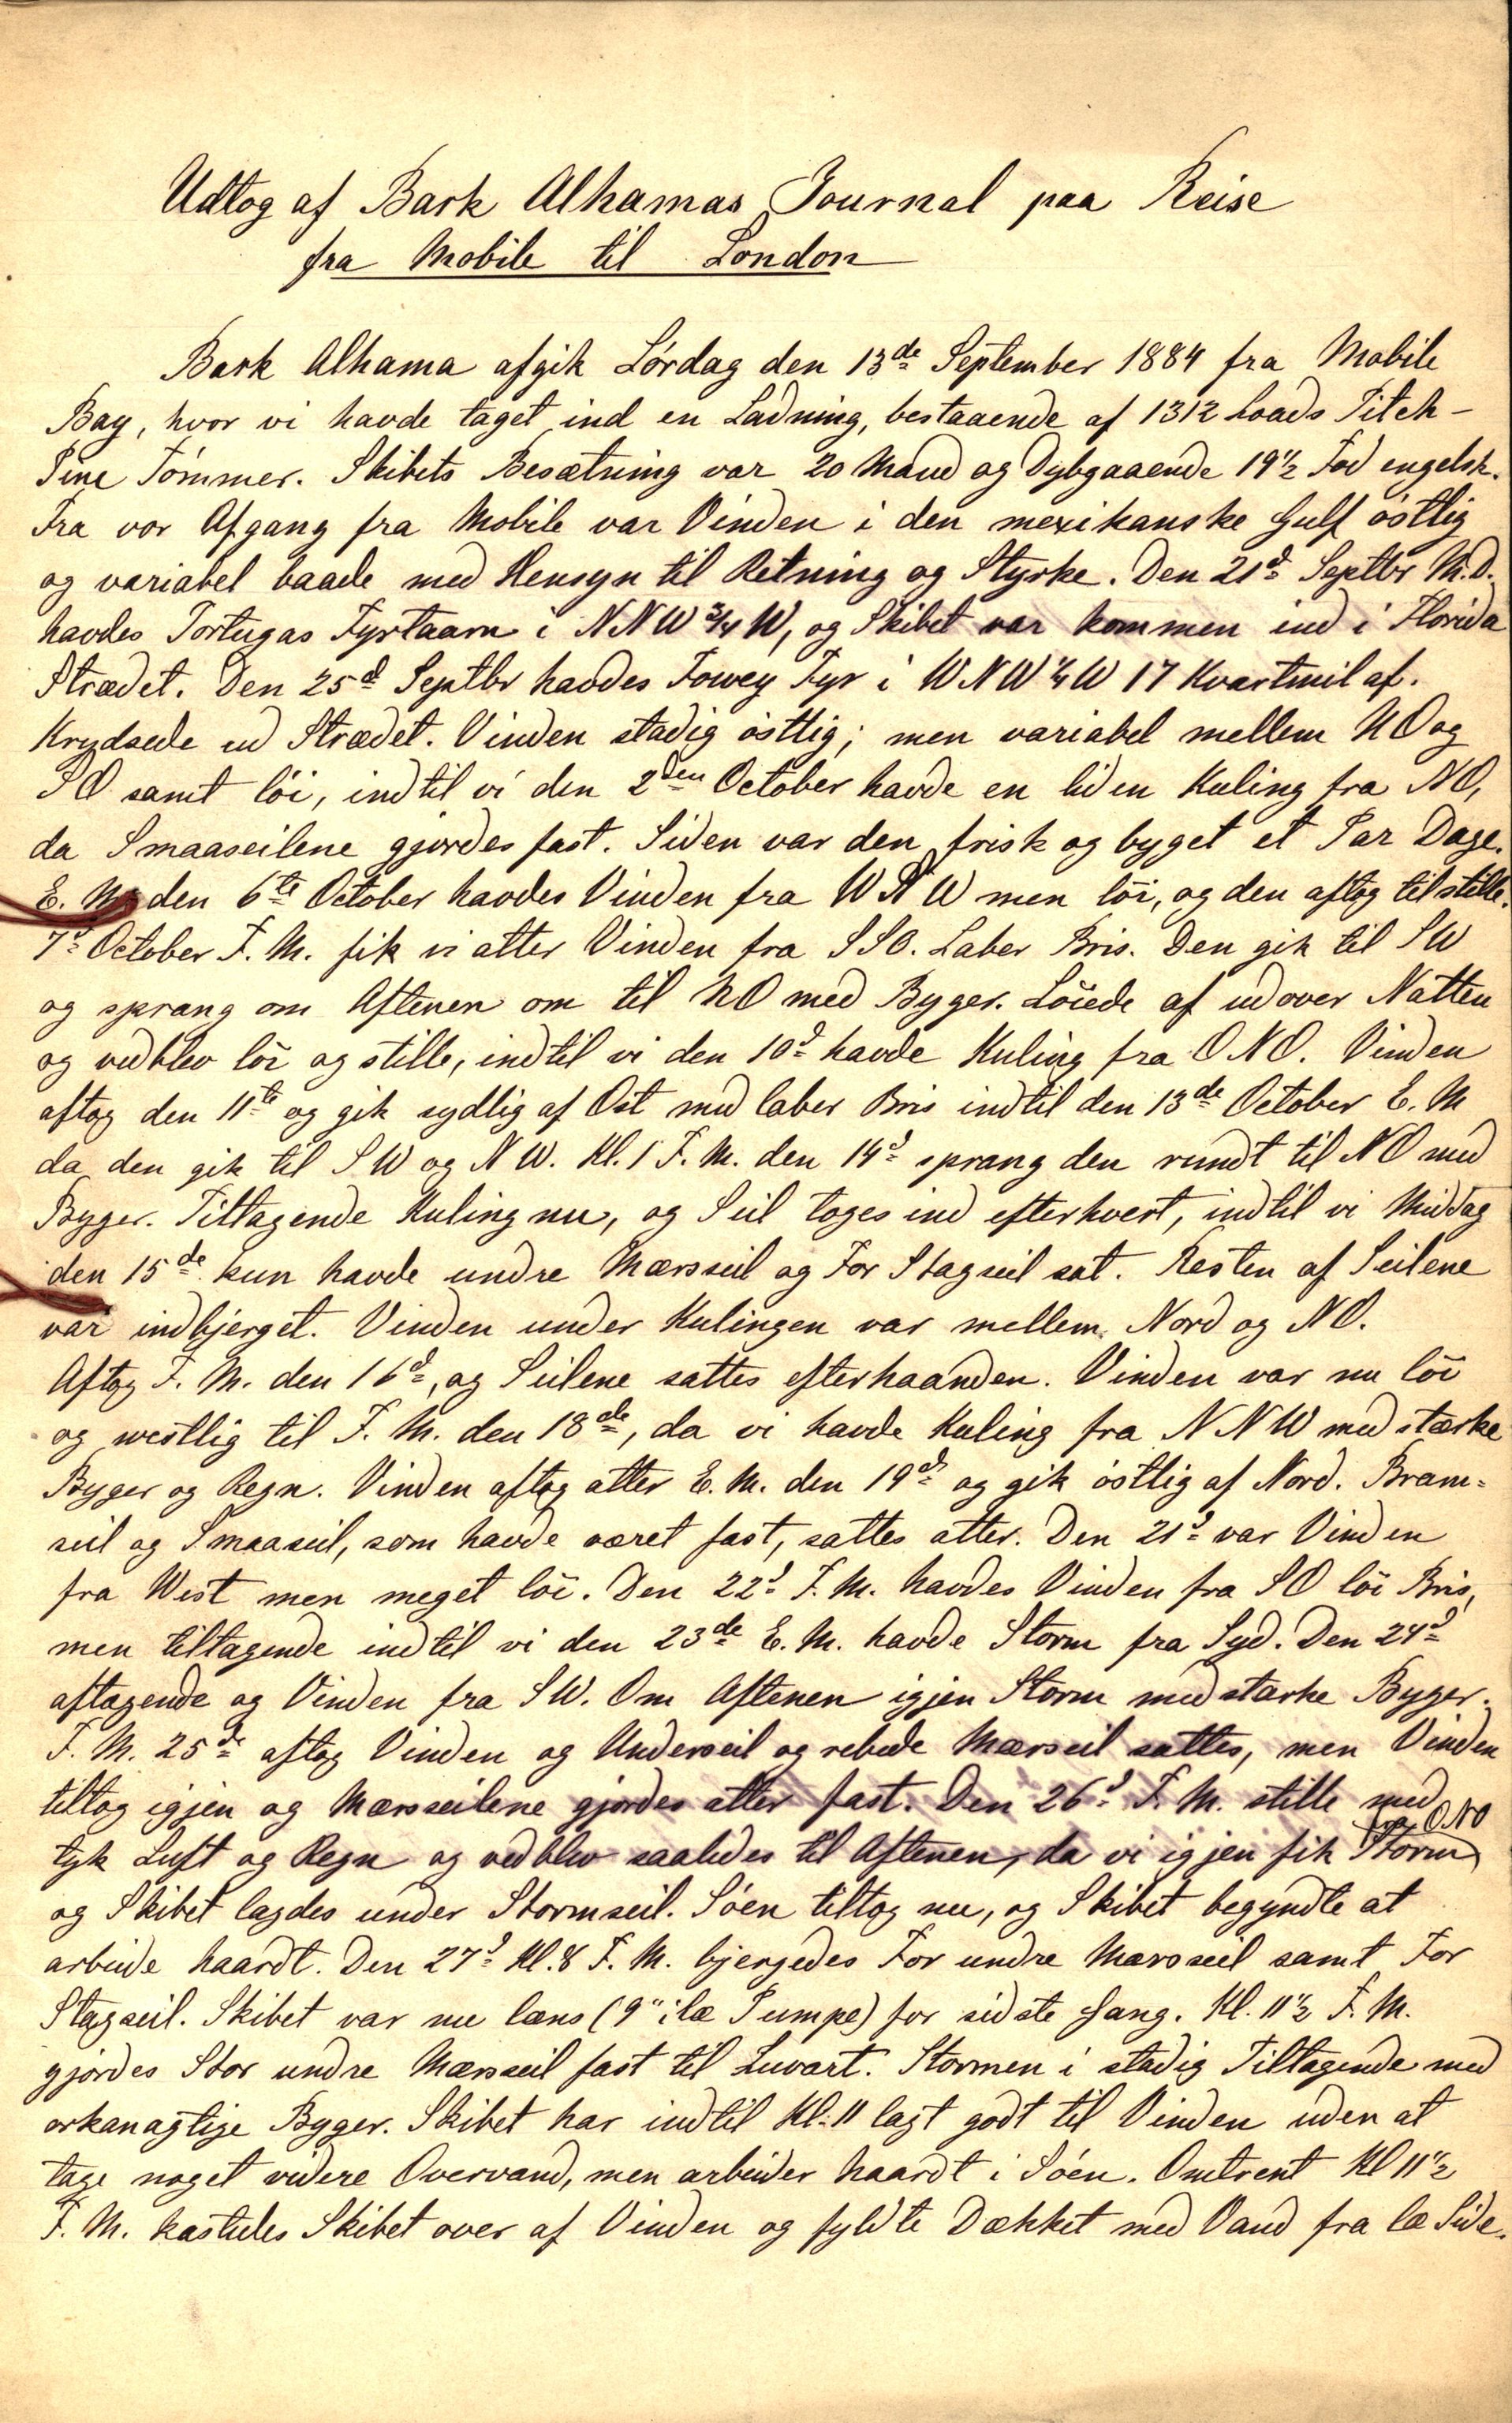 Udtog af Bark Alhamas Journal paa Reise
fra Mobile til London
Bark Alhama afgik Lørdag den 13de September 1884 fra Mobile
Bay, hvor vi havde taget ind en Ladning, bestaaende af 1312 Loads Pitch-
Pine Tømmer. Skibets Besætning var 20 Mand og Dybgaaende 19 1/2 Fod engelsk.
Fra vor Afgang fra Mobile var Vinden i den mexikanske Gulf østlig
og variabel baade med Hensyn til Retning og Styrke. Den 21d Septbr M.D.
havdes Tortugas Fyrtaarn i NNW 3/4 W, og Skibet var kommen ind i Florida
Strædet. Den 25d Septbr havdes Fowey Fyr i WNW 1/4 W 17 Kvartmil af.
Krydsede ud Strædet. Vinden stadig østlig; men variabel mellem NO og
SO samt löi, indtil vi den 2den October havde en liden Kuling fra NO,
da Smaaseilene gjordes fast. Siden var den frisk og byget et Par Dage.
E. M. den 6te October havdes Vinden fra WNW men löi, og den aftog til stille.
7d October F. M. fik vi atter Vinden fra SSO. Laber Bris. Den gik til SW
og sprang om Aftenen om til NO med Byger. Löiede af udover Natten
og vedblev löi og stille, indtil vi den 10d havde Kuling fra ONO. Vinden
aftog den 11te og gik sydlig af Ost med laber Bris indtil den 13de October E. M
da den gik til SW og NW. Kl. 1 F. M. den 14d sprang den rundt til NO med
Byger. Tiltagende Kuling nu, og Seil toges ind efterhvert, indtil vi Middag
den 15de kun havde undre Mærsseil og For Stagseil sat. Resten af Seilene
var indbjerget. Vinden under Kulingen var mellem Nord og NO.
Aftog F. M. den 16d, og Seilene sattes efterhaanden. Vinden var nu löi
og westlig til F. M. den 18de, da vi havde Kuling fra NNW med stærke
Byger og Regn. Vinden aftog atter E. M. den 19d og gik østlig af Nord. Bram=
seil og Smaaseil, som havde været fast, sattes atter. Den 21d var Vinden
fra West men meget löi. Den 22d F. M. havdes Vinden fra SO löi Bris,
men tiltagende indtil vi den 23de E. M. havde Storm fra Syd. Den 24d
aftagende og Vinden fra SW. Om Aftenen igjen Storm med stærke Byger.
F. M. 25de aftog Vinden og Underseil og rebede Mærsseil sattes, men Vinden
tiltog igjen og Mærsseilene gjordes atter fast. Den 26d F. M. stille med
tyk Luft og Regn og vedblev saaledes til Aftenen, da vi igjen fik Storm fra ONO
og Skibet lagdes under Stormseil. Søen tiltog nu, og Skibet begyndte at
arbeide haardt. Den 27d Kl. 8 F. M. bjergedes For undre Mærsseil samt For
Stagseil. Skibet var nu læns (9" i læ Pumpe) for sidste Gang. Kl. 11 1/2 F. M.
gjordes Stor undre Mærsseil fast til Luvart. Stormen i stadig Tiltagende med
orkanagtige Byger. Skibet har indtil Kl. 11 lagt godt til Vinden uden at
tage noget videre Overvand, men arbeider haardt i Søen. Omtrent Kl 11 1/2
F. M. kastedes Skibet over af Vinden og fyldte Dækket med Vand fra læ Side.